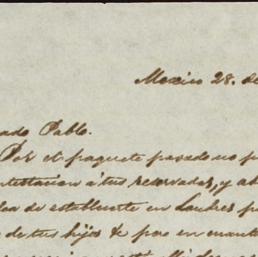 Mexico 28. de
ado Pablo.
Por el paquete pasado no p
ntestacion á tus reservadas, y a
dea de establecerte en Londres p
de tus hijos &c pero en cuanto